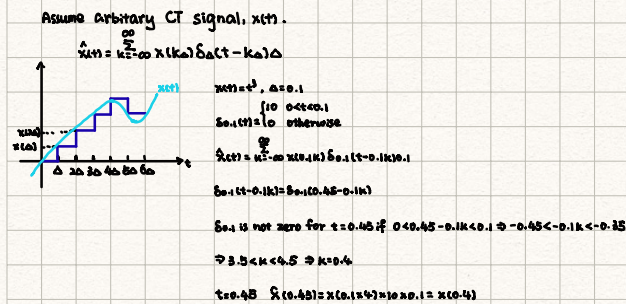 Assume arbitrary CT signal, x(t).
x̂(t) = ∞ Σ k=-∞ x(kΔ) δΔ(t-kΔ)Δ
x(t)
x(2Δ)
x(Δ)
Δ 2Δ 3Δ 4Δ 5Δ 6Δ t
x(t)=t³, Δ=0.1
δ0.1(t)={10 0<t<0.1
0 otherwise
x̂(t) = ∞ Σ k=-∞ x(0.1k) δ0.1(t-0.1k)0.1
δ0.1(t-0.1k)=δ0.1(0.45-0.1k)
δ0.1 is not zero for t=0.45 if 0<0.45-0.1k<0.1 ⇒ -0.45<-0.1k<-0.35
⇒ 3.5<k<4.5 ⇒ k=0.4
t=0.45 x̂(0.45)=x(0.1x4)x10x0.1=x(0.4)